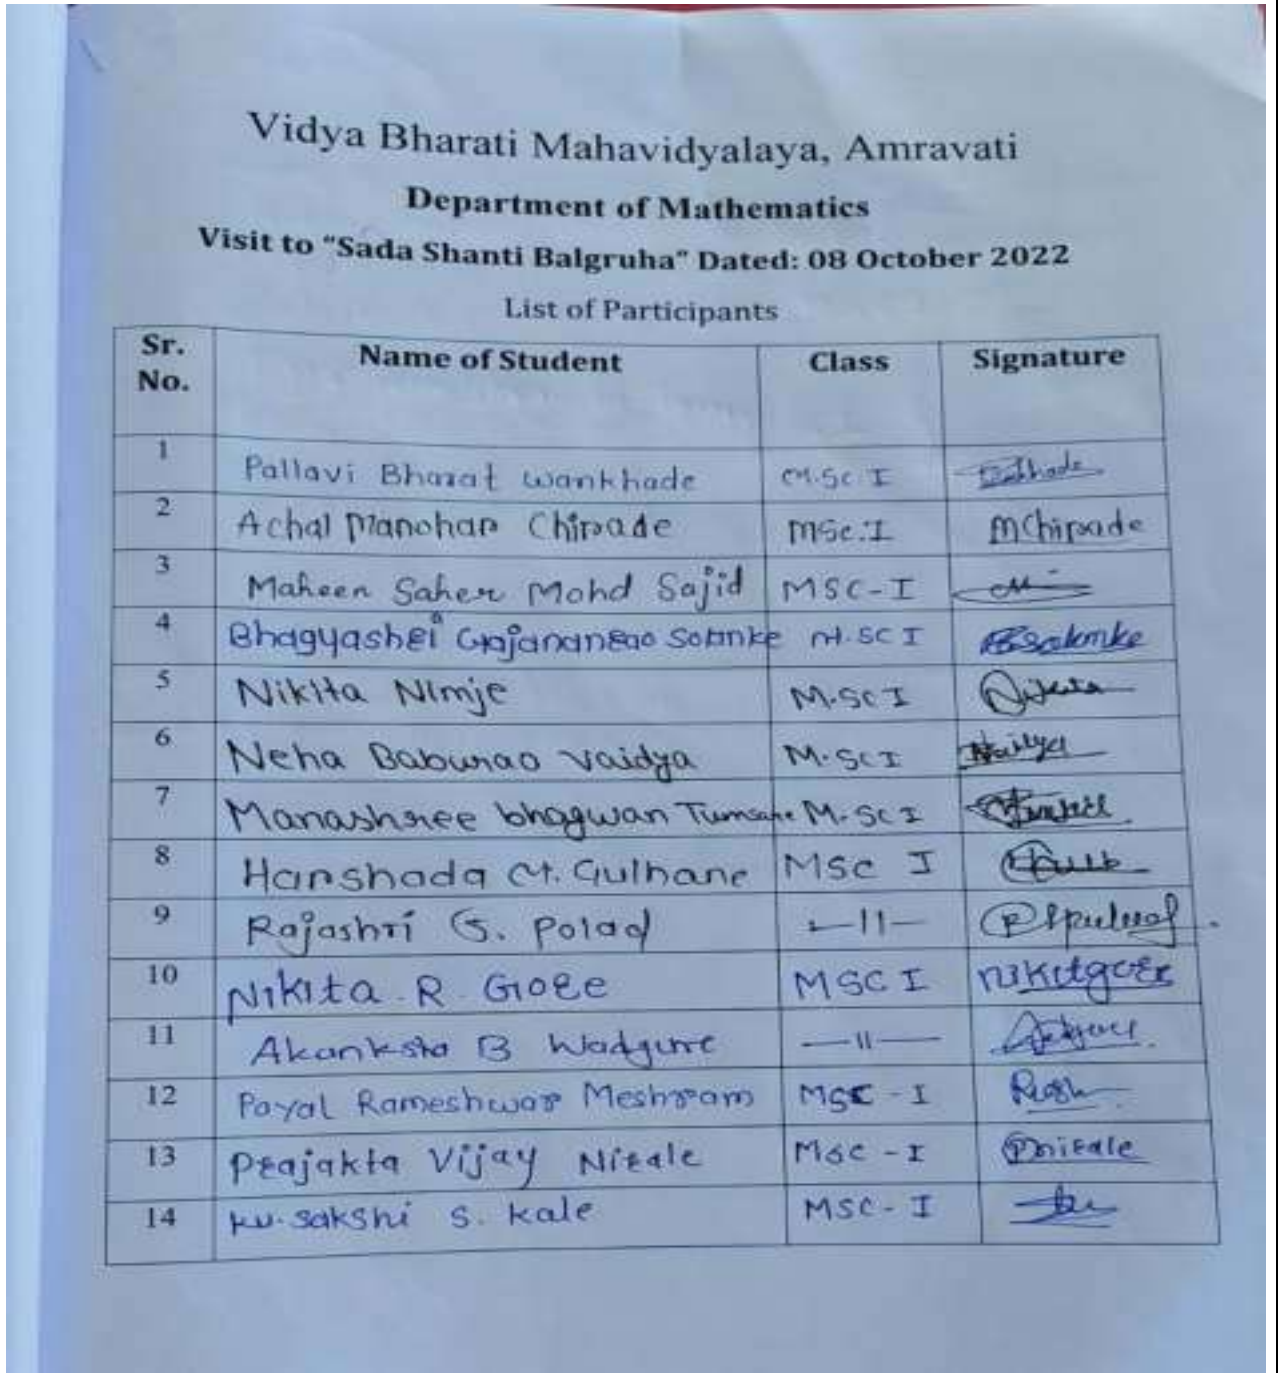 Vidya Bharati Mahavidyalaya, Amravati
Department of Mathematics
Visit to "Sada Shanti Balgruha" Dated: 08 October 2022
List of Participants
Sr. No. Name of Student Class Signature
1 Pallavi Bharat Wankhade M.Sc. I
2 Achal Manohar Chirade MSc.I MChirade
3 Maheen Saher Mohd Sajid MSC-I
4 Bhagyashri Gajananrao Solanke M.SC I
5 Nikita Nimje M.SC I Nikita
6 Neha Baburao Vaidya M.SC I Vaidya
7 Manashree bhagwan Tumsare M.SC I
8 Harshada M. Gulhane MSC I
9 Rajashri G. Polad —11—
10 Nikita R Gore MSC I
11 Akanksha B Wadgure —11—
12 Payal Rameshwar Meshram MSC - I
13 Prajakta Vijay Nirale MSC - I Pnirale
14 ku. sakshi S. kale MSC - I